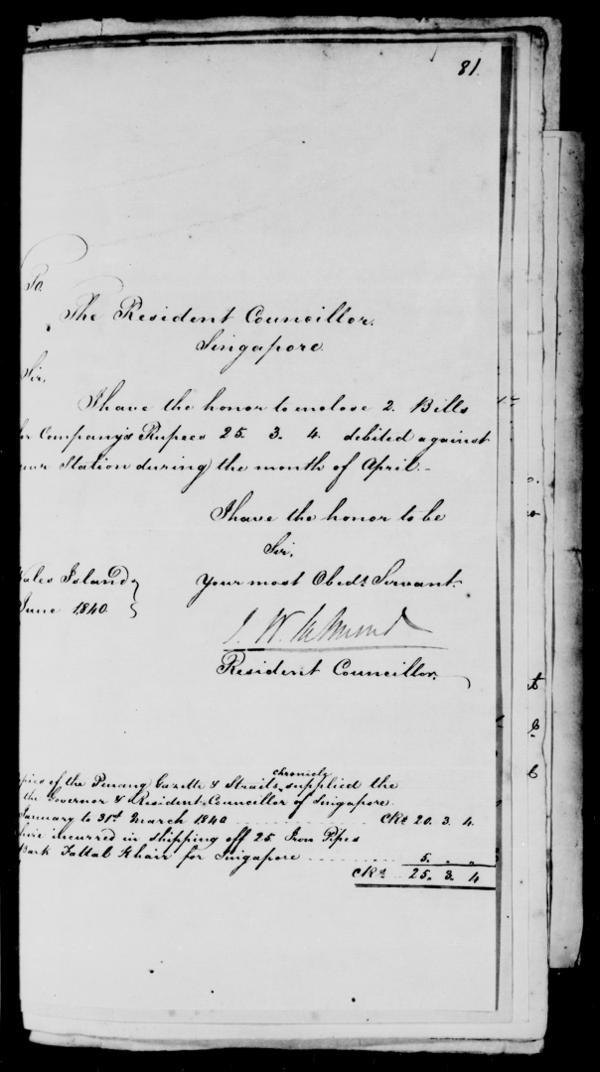 81.
To
The Resident Councillor.
Singapore
Sir,
I have the honor to enclose 2. Bills
for Company's Rupees 25. 3. 4. debited against
your Station during the month of April.
I have the honor to be
Sir,
Wales Island
Your most Obedt. Servant.
June 1840
Resident Councillor.
chronicle
pies of the Penang Gazette & Straits supplied the
the Governor & Resident Councillor of Singapore.
January to 31st March 1840 CRs 20. 3. 4.
hire incurred in shipping off 25 Iron Pipes
Bark Fattal Khair for Singapore 5. . .
CRs. 25. 3. 4